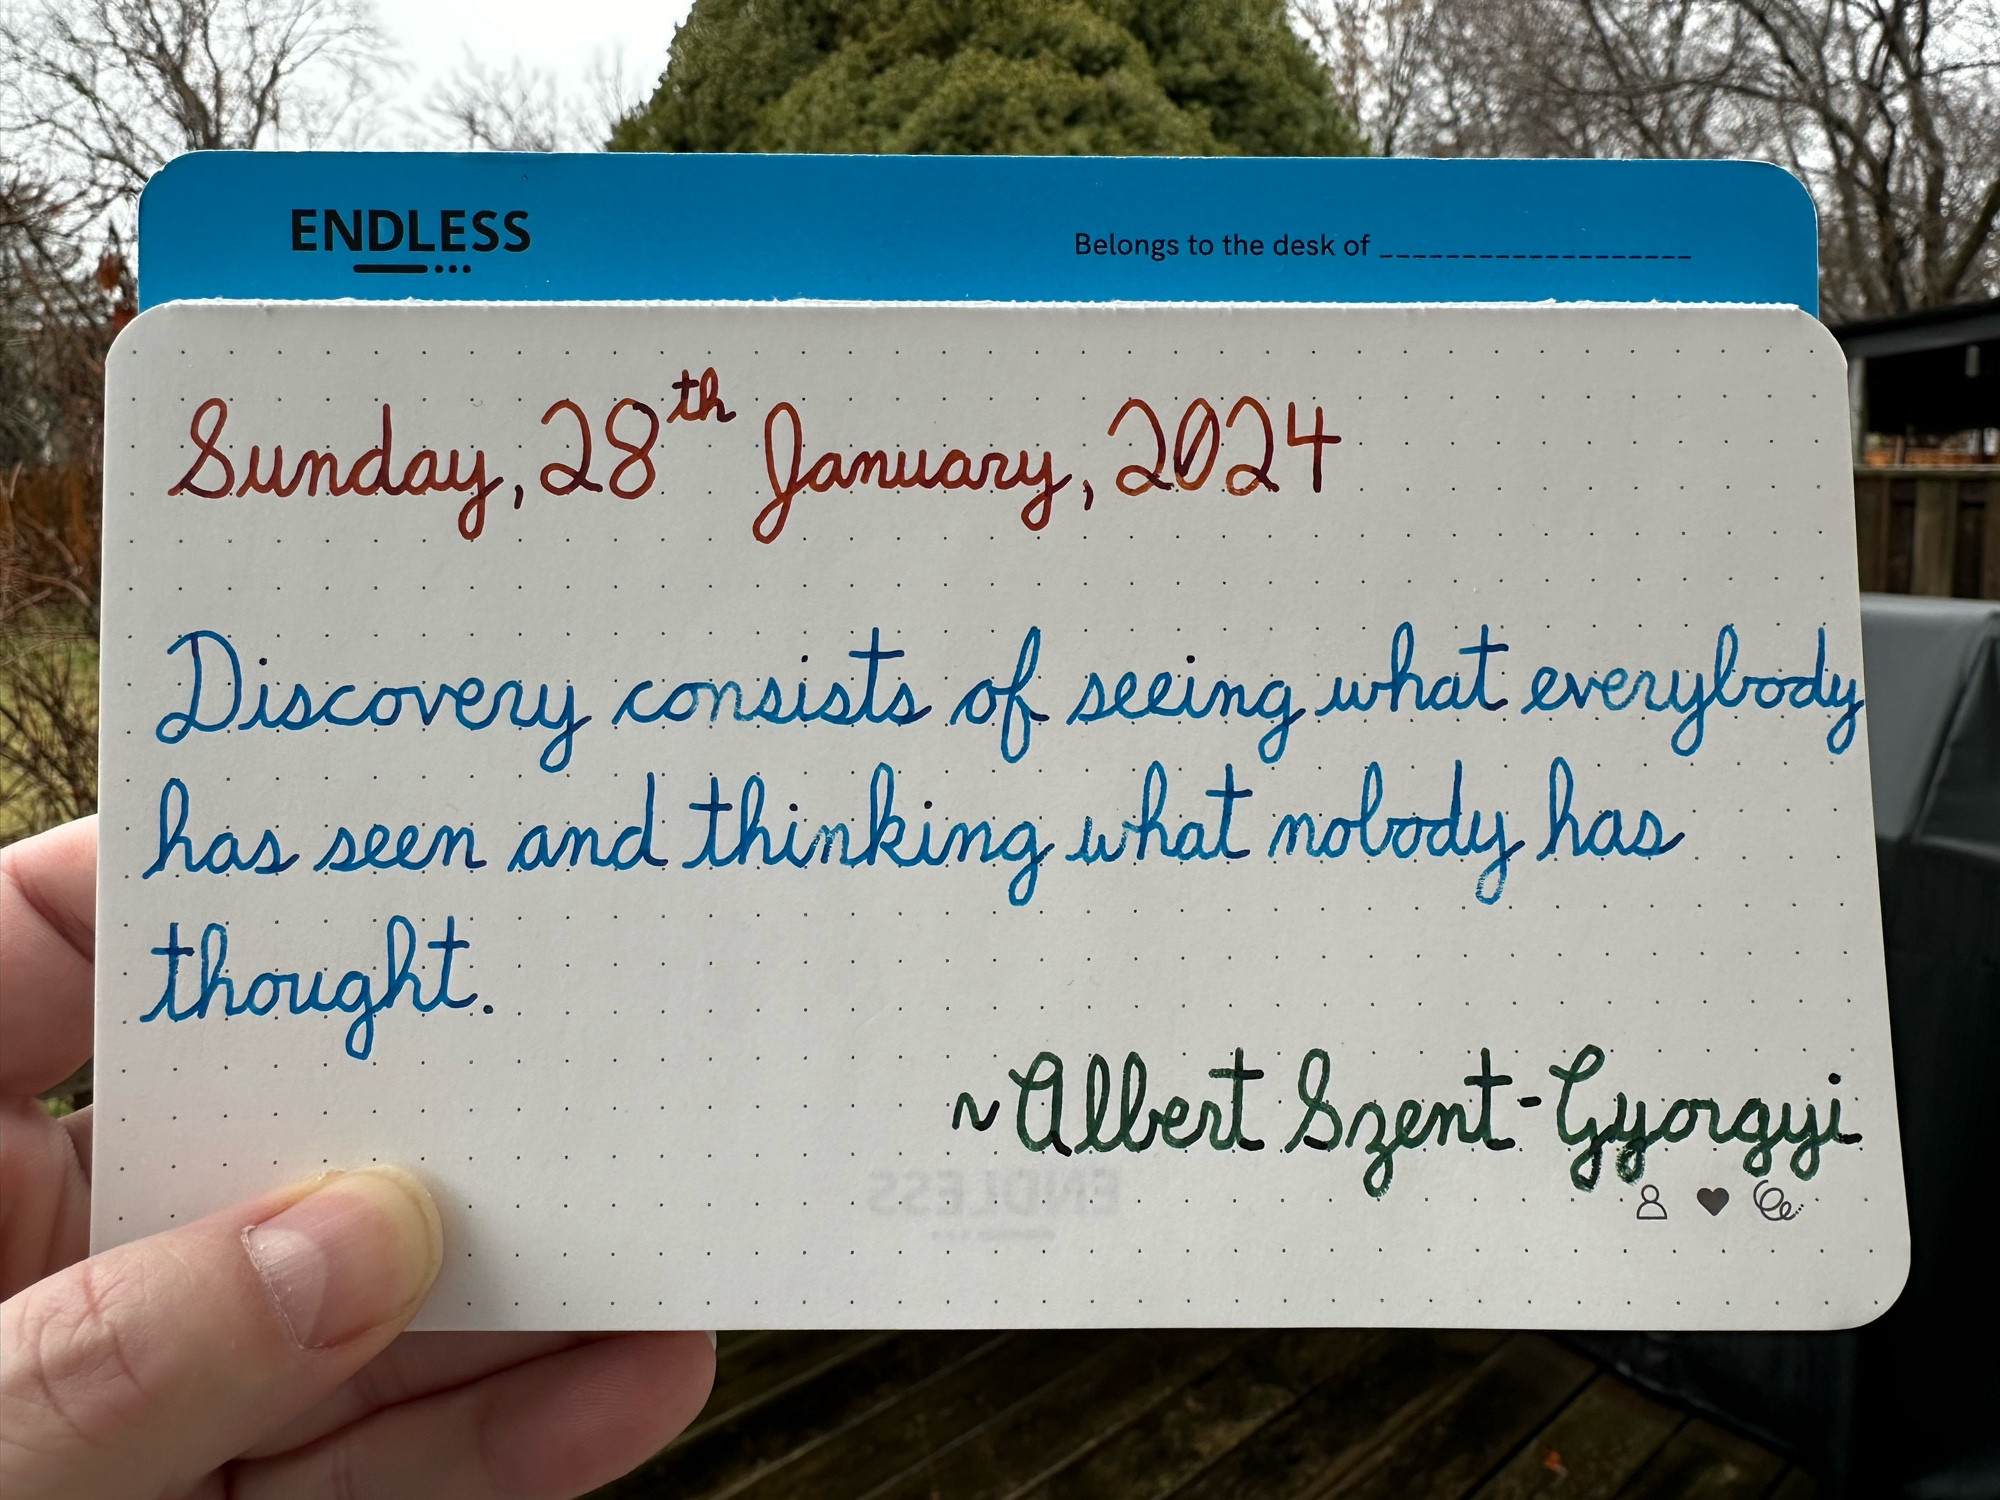 ENDLESS
Belongs to the desk of ___________________
Sunday, 28th January, 2024
Discovery consists of seeing what everybody
has seen and thinking what nobody has
thought.
~Albert Szent-Gyorgyi
ENDLESS